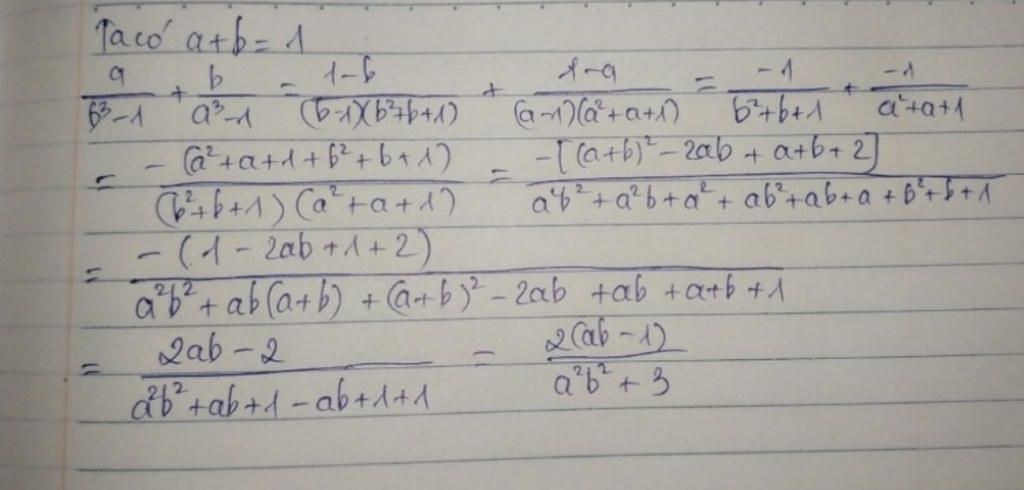 Ta có a+b=1
a/(b³-1) + b/(a³-1) = (1-b)/((b-1)(b²+b+1)) + (1-a)/((a-1)(a²+a+1)) = -1/(b²+b+1) + -1/(a²+a+1)
= -(a²+a+1+b²+b+1)/((b²+b+1)(a²+a+1)) = -[(a+b)²-2ab+a+b+2]/(a²b²+a²b+a²+ab²+ab+a+b²+b+1)
= -(1-2ab+1+2)/(a²b²+ab(a+b)+(a+b)²-2ab+ab+a+b+1)
= (2ab-2)/(a²b²+ab+1-ab+1+1) = 2(ab-1)/(a²b²+3)